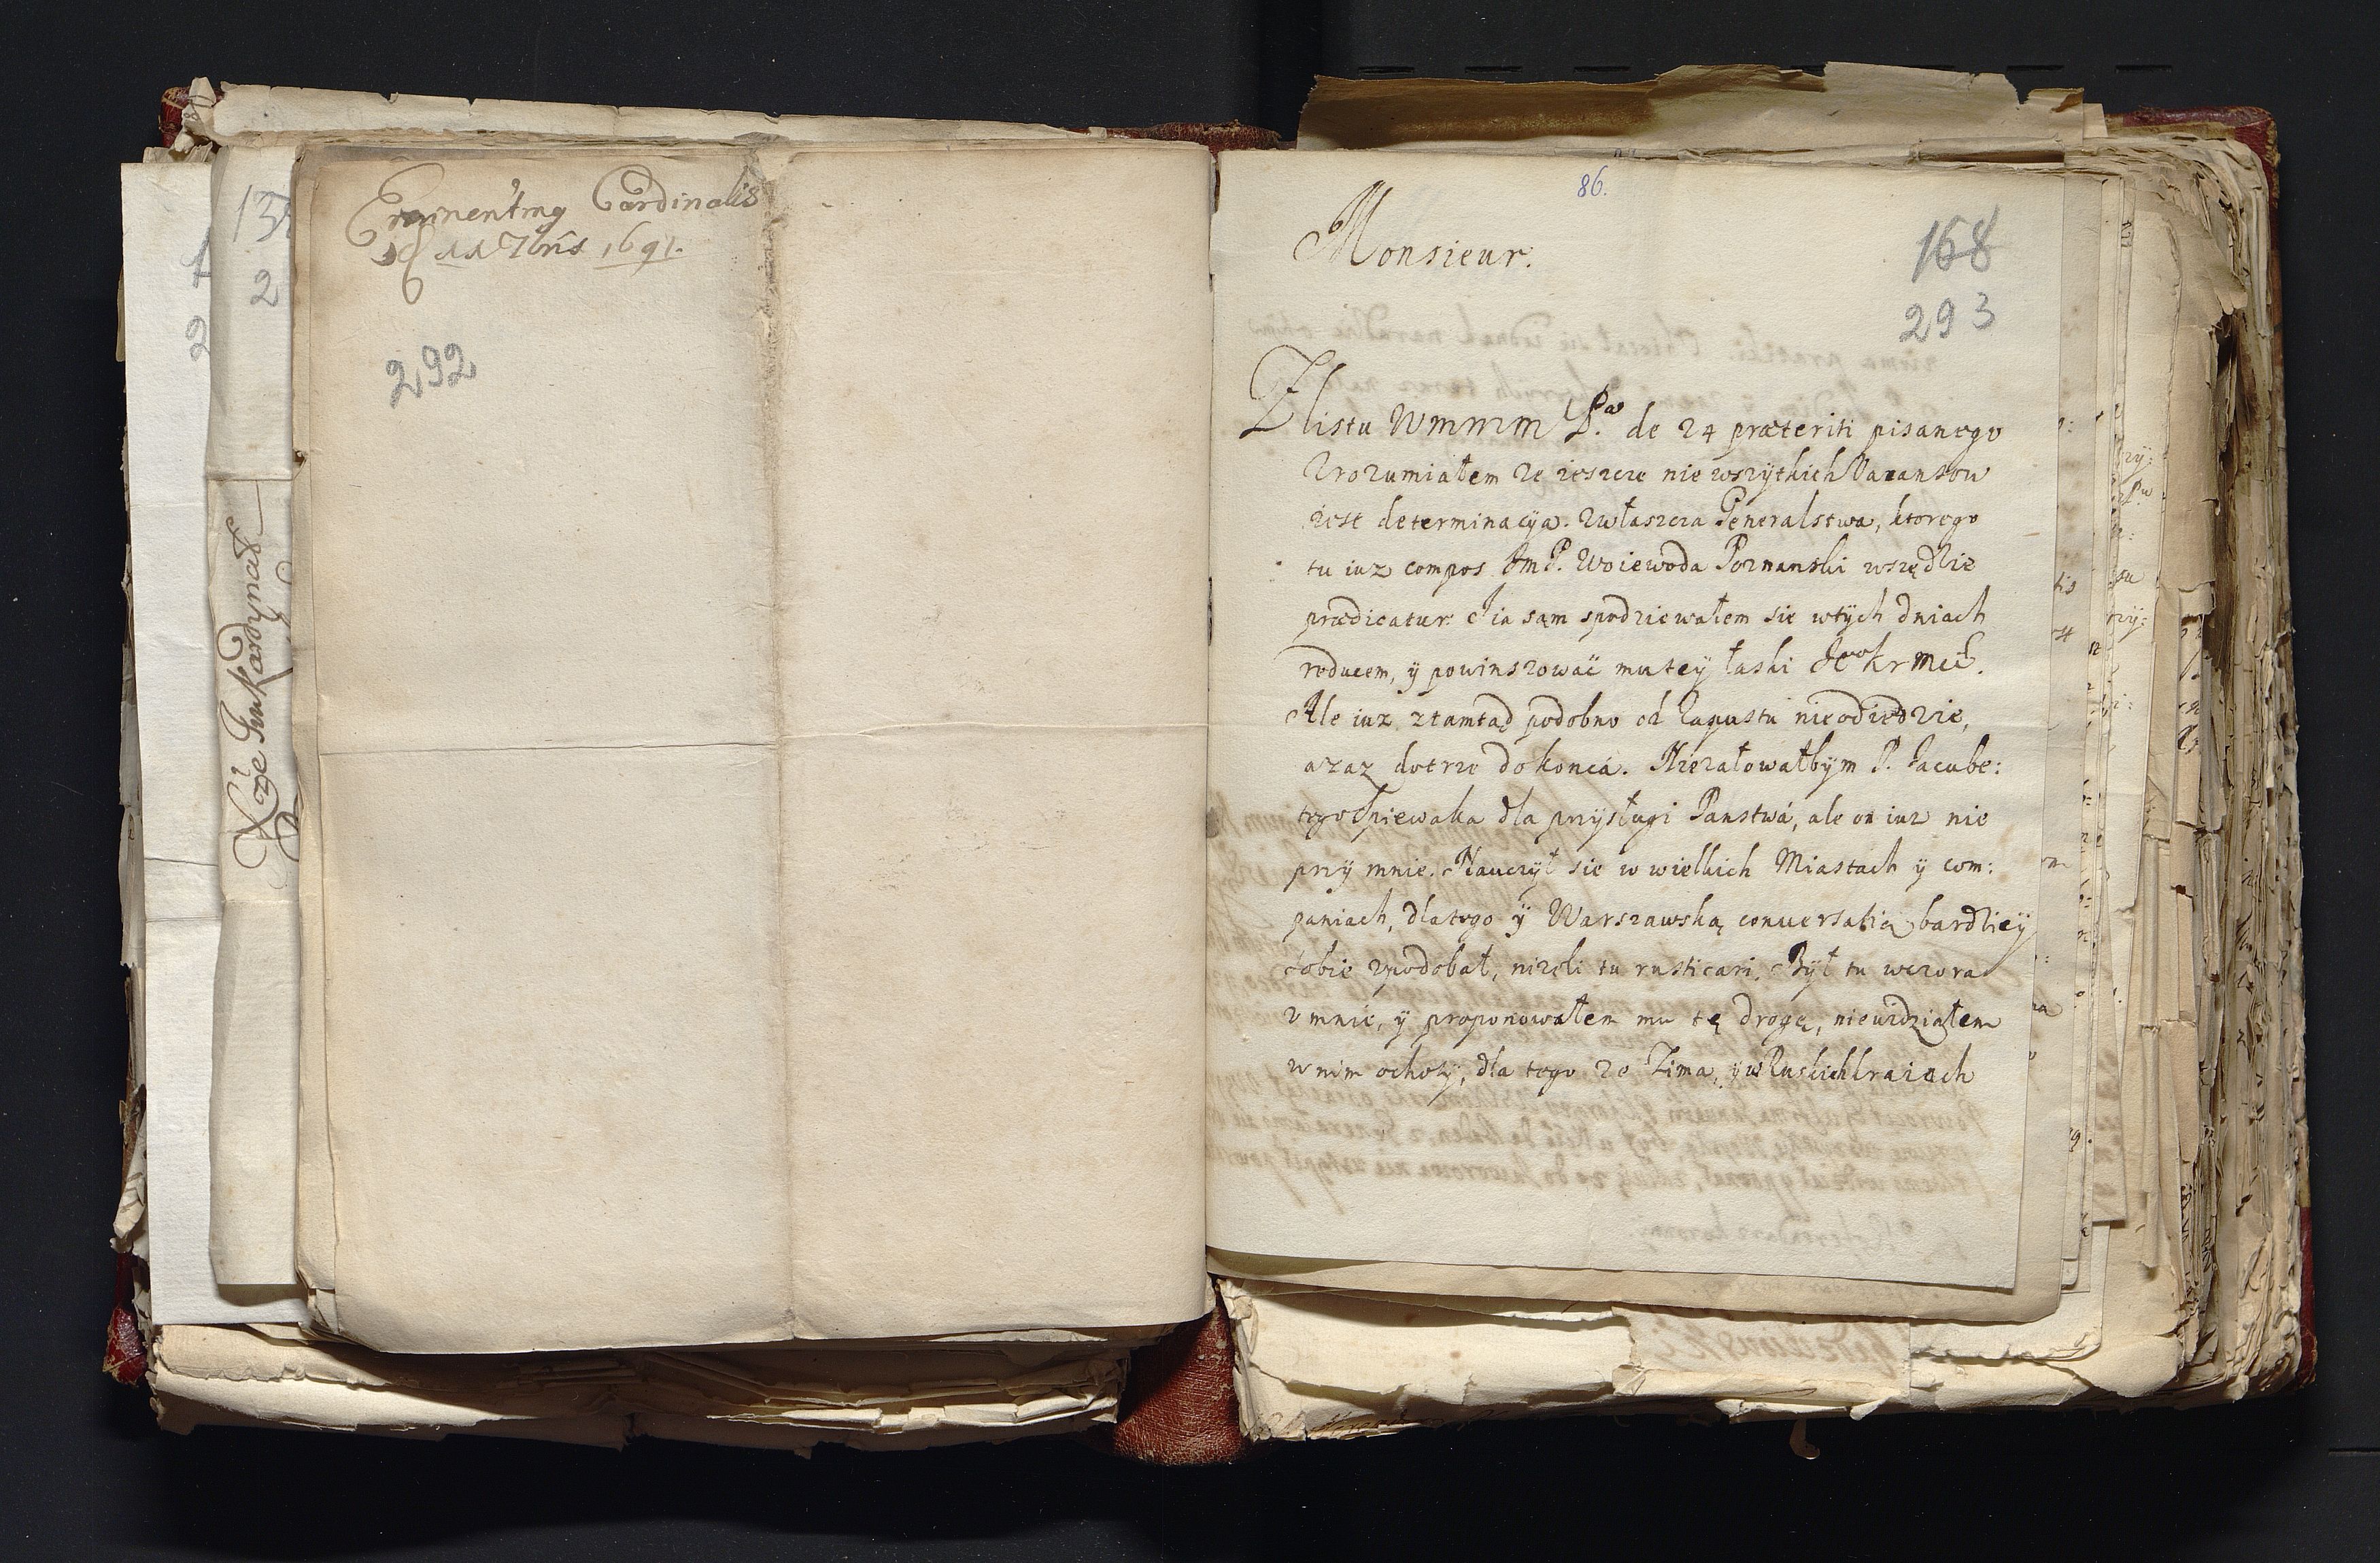 Cardinalis
11 7bris 1691.
292
Xże Jmć Kardynał
86.
168
293
Monsieur.
Z listu Wmmm Pa. de 24 præteriti pisanego
Zrozumiałem ze ieszcze nie wszytkich Vacansow
iest determinacÿa. Zwłaszcza Generalstwa, ktorego
tu iuz compos JmP. Woiewoda Poznanski wszędzie
prædicatur. Ja sam spodziewałem sie wtÿch dniach
reducem, ÿ powinszować mu teÿ łaski Jego Kr Mci.
Ale iuz ztamtąd podobno od Zapustu nieodiedzie,
azaz dotrze do końca. Niezałowałbÿm P. Jacube:
tego Spiewaka dla przÿsługi Panstwá, ale on iuz nie
przÿ mnie. Nauczÿł sie w wielkich Miastach ÿ com:
paniach, dlatego ÿ Warszawską conuersatią bardzieÿ
sobie vpodobał, nizeli tu rusticari. Bÿł tu wczora
v mnie, ÿ proponowałem mu tę drogę, niewidziałem
w nim ochotÿ, dla tego ze Zima, ÿ w Ruskich kraiach